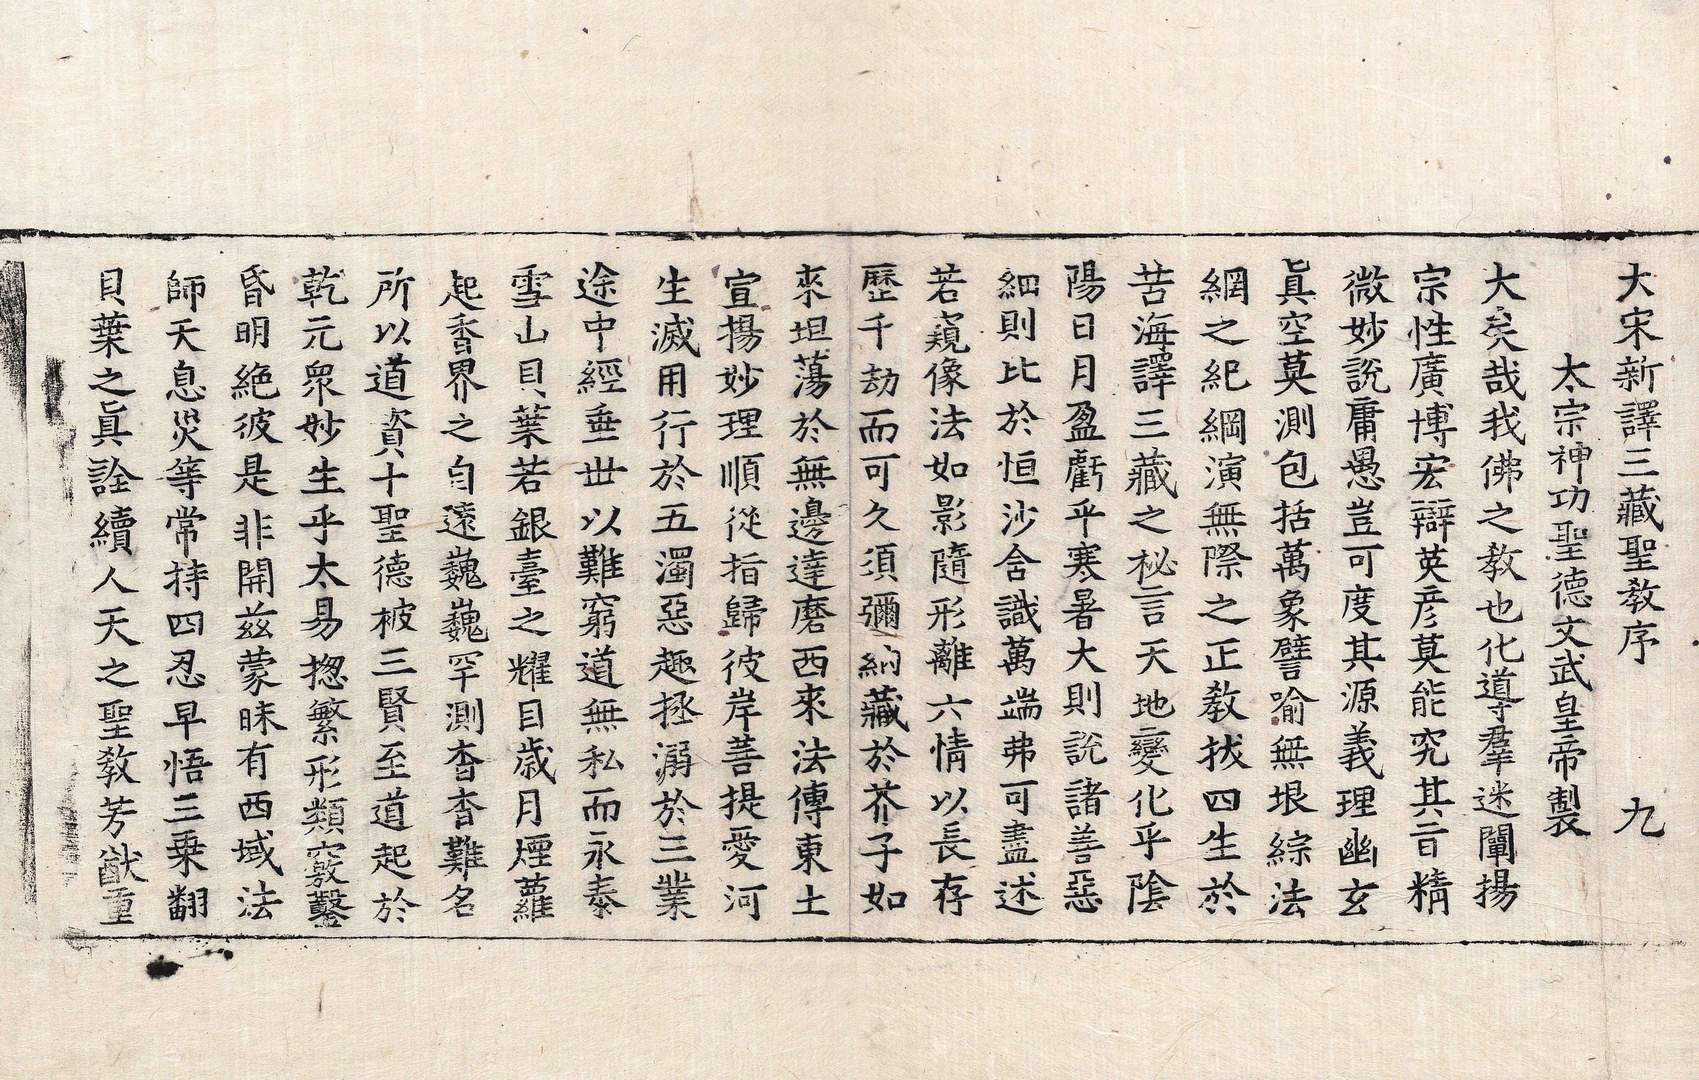 大宋新譯三藏聖教序 九
太宗神功聖德文武皇帝製
大矣哉我佛之教也化導羣迷闡揚
宗性廣博宏辯英彥莫能究其旨精
微妙說庸愚豈可度其源義理幽玄
眞空莫測包括萬象譬喻無垠綜法
網之紀綱演無際之正教拔四生於
苦海譯三藏之秘言天地變化乎陰
陽日月盈虧乎寒暑大則說諸善惡
細則比於恒沙含識萬端弗可盡述
若窺像法如影隨形離六情以長存
歷千劫而可久須彌納藏於芥子如
來坦蕩於無邊達磨西來法傳東土
宣揚妙理順從指歸彼岸菩提愛河
生滅用行於五濁惡趣拯溺於三業
途中經垂世以難窮道無私而永泰
雪山貝葉若銀臺之耀目歲月煙蘿
起香界之自遠巍巍罕測杳杳難名
所以道資十聖德被三賢至道起於
乾元衆妙生乎太易揔繁形類竅鑿
昏明絶彼是非開茲蒙昧有西域法
師天息災等常持四忍早悟三乘翻
貝葉之眞詮續人天之聖教芳猷重